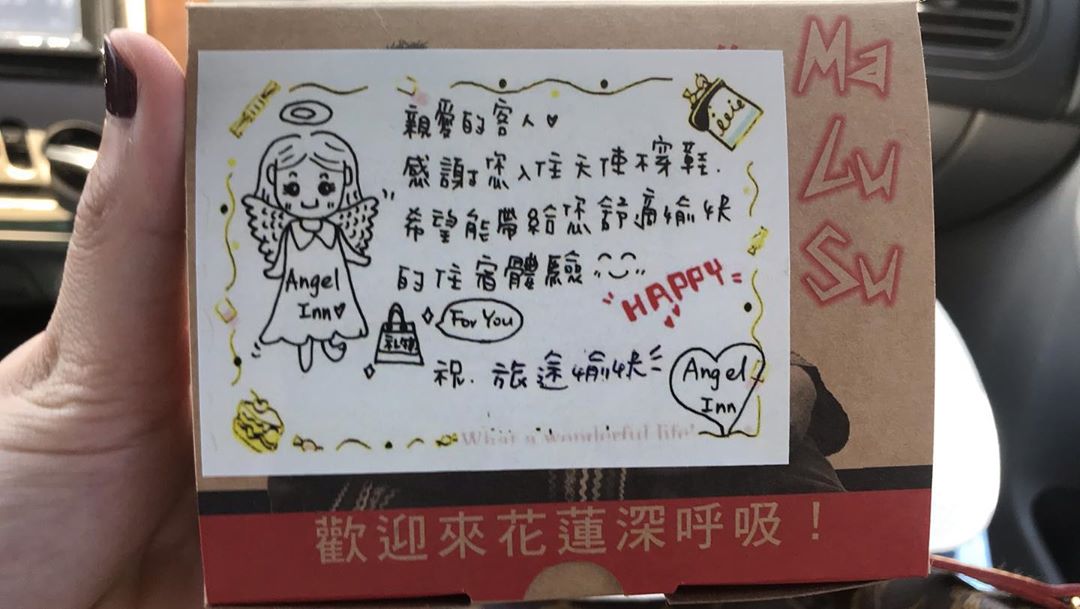 親愛的客人♥
感謝您入住天使不穿鞋.
希望能帶給您舒適愉快
的住宿體驗
HAPPY
Angel
Inn♥
禮物
For You
祝.旅途愉快
Angel
Inn
What a wonderful life!
Ma
Lu
Su
歡迎來花蓮深呼吸！